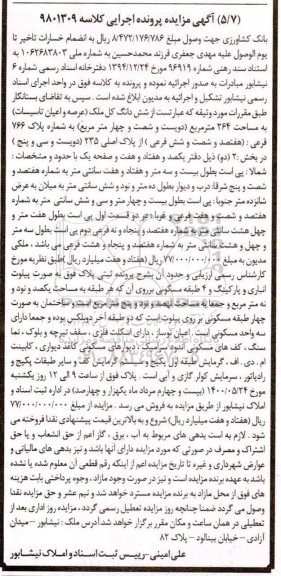 (۵/۷) آگهی مزایده پرونده اجرایی کلاسه ۹۸۰۱۳۰۹
بانک کشاورزی جهت وصول مبلغ ۸/۴۷۲/۱۷۶/۷۸۶ ریال به انضمام خسارات تاخیر تا
یوم الوصول علیه مهدی جعفری فرزند محمدحسین به شماره ملی ۱۰۶۲۶۸۳۸۰۳ به
استناد سند رهنی شماره ۹۶۹۱۹ مورخ ۱۳۹۴/۱۲/۲۴ دفترخانه اسناد رسمی شماره ۶
نیشابور مبادرات به صدور اجرائیه نموده و پرونده به کلاسه فوق در واحد اجرای اسناد
رسمی نیشابور تشکیل و اجرائیه به مدیون ابلاغ شده است . سپس به تقاضای بستانکار
طبق مقررات مورد وثیقه که عبارتست از شش دانگ کل ملک (عرصه و اعیان تاسیسات)
به مساحت ۲۶۴ مترمربع (دویست و شصت و چهار متر مربع) به شماره پلاک ۷۶۶
فرعی : (هفتصد و شصت و شش فرعی ) از پلاک اصلی ۲۳۵ (دویست و سی و پنج )
در بخش:۲ (دو) ذیل دفتر یکصد و هفتاد و هفت و صفحه یک با حدود و مشخصات :
شمالا : پی است بطول بیست و سه متر و هفتاد و هفت سانتی متر به شماره هفتصد و
شصت و پنج شرقا: درب و دیوار بطول ده متر و نود و شش سانتی متر به میلان به عرض
شانزده متر جنوبا : پی است بطول بیست و چهار متر و سی و شش سانتی متر به شماره
هفتصد و شصت و هفت فرعی و غربا : در دو قسمت اول پی است بطول هفت متر و
چهل هشت سانتی متر به شماره هفتصد و پنجاه و نه فرعی دوم پی است بطول سه متر
و چهل و هشت سانتی متر به شماره هفتصد و پنجاه و هشت فرعی می باشد ، ملکی
مدیون به مبلغ ۷۷/۰۰۰/۰۰۰/۰۰۰ ریال (هفتاد و هفت میلیارد ریال )طبق نظریه مورخ
کارشناس رسمی ارزیابی و حدود آن بشرح پرونده ثبتی پلاک فوق به صورت پیلوت
انباری و پارکینگ و ۴ طبقه مسکونی برروی آن که هر طبقه به مساحت یکصد و نود و
نه متر مربع و جمعا به مساحت نهصد و نود و پنج متر مربع است و ساختمان به صورت
چهار طبقه مسکونی بر روی پیلوت است که دو طبقه آخر دوبلکس بوده و جمعا دارای
سه واحد مسکونی است . اعیان نوساز ، دارای اسکلت فلزی ، سقف تیرچه و بلوک ، نما
سنگ ، کف های مسکونی اندود سرامیک ، دیوارهای مسکونی کاغذ دیواری ، کابینت
ام . دی . اف ، گرمایش طبقه اول پکیج و سیستم گرمایش کف و سایر طبقات پکیج و
رادیاتور ، سرمایش کولر گازی و آبی است . پلاک فوق از ساعت ۹ الی ۱۲ روز یکشنبه
مورخ ۱۴۰۰/۰۵/۲۴ (بیست و چهارم مرداد ماه یکهزار و چهارصد) در اداره ثبت اسناد و
املاک نیشابور از طریق مزایده به فروش می رسد . مزایده از مبلغ ۷۷/۰۰۰/۰۰۰/۰۰۰
ریال (هفتاد و هفت میلیارد ریال) شروع و به بالاترین قیمت پیشنهادی نقدا فروخته می
شود . لازم به است بدهی های مربوط به آب ، برق ، گاز اعم از حق انشعاب و یا حق
اشتراک و مصرف در صورتی که مورد مزایده دارای آنها باشد و نیز بدهی های مالیاتی و
عوارض شهرداری و غیره تا تاریخ مزایده اعم از اینکه رقم قطعی آن معلوم شده یا نشده
باشد به عهده برنده مزایده است و نیز در صورت وجود مازاد ، وجوه پرداختی بابت هزینه
های فوق از محل مازاد به برنده مزایده مسترد خواهد شد و نیم عشر و حق مزایده نقدا
وصول می گردد ضمنا چنانچه روز مزایده تعطیل رسمی گردد ، مزایده روز اداری بعد از
تعطیلی در همان ساعت و مکان مقرر برگزار خواهد شد آدرس ملک : نیشابور – میدان
آزادی – خیابان بینالود – پلاک ۸۲
علی امینی-رییس ثبت اسناد و املاک نیشابور